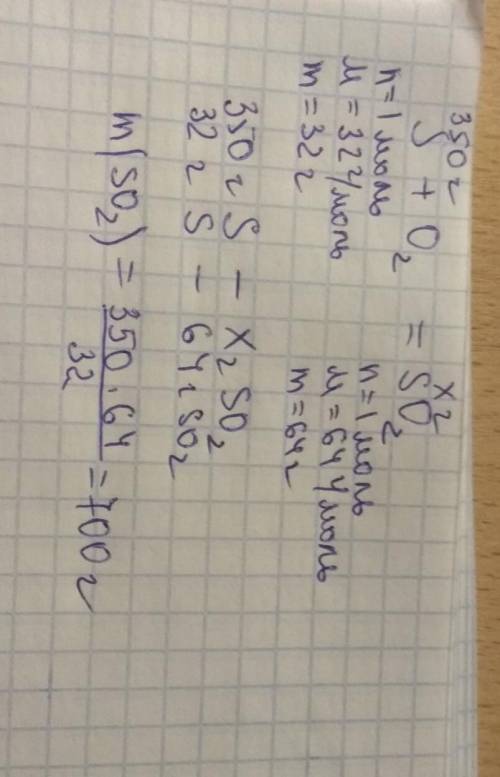 350 г X г
S + O₂ = SO₂
n = 1 моль n = 1 моль
M = 32 г/моль M = 64 г/моль
m = 32 г m = 64 г
350 г S – X г SO₂
32 г S – 64 г SO₂
m(SO₂) = 350 · 64 / 32 = 700 г